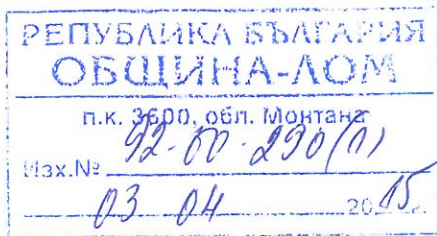 РЕПУБЛИКА БЪЛГАРИЯ
ОБЩИНА-ЛОМ
п.к. 3600, обл. Монтана
Изх.№ 92-00-290(1)
03 04 2015